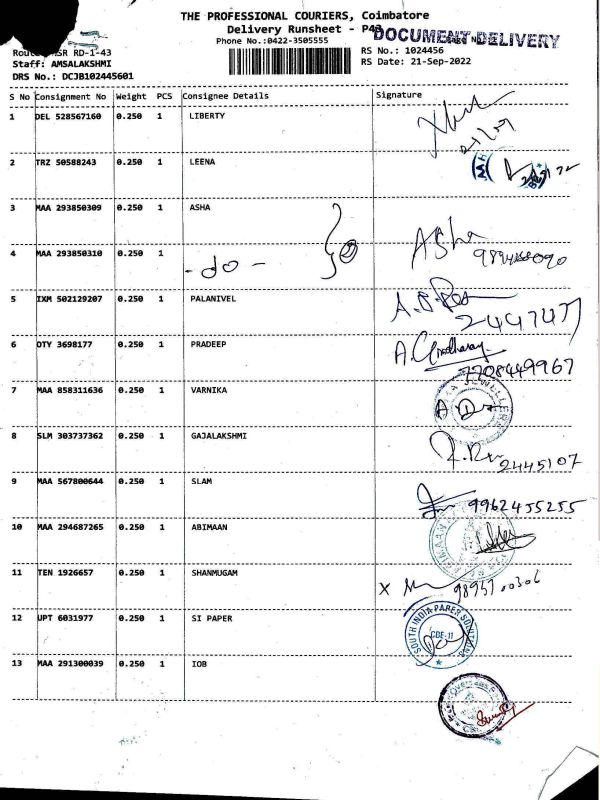 THE PROFESSIONAL COURIERS, Coimbatore
Delivery Runsheet - P48
DOCUMENT DELIVERY
Phone No.:0422-3505555
RS No.: 1024456
RD-1-43
Staff: AMSALAKSHMI
RS Date: 21-Sep-2022
DRS No.: DCJB102445601
S No Consignment No Weight PCS Consignee Details Signature
1 DEL 528567160 0.250 1 LIBERTY
2 TRZ 50588243 0.250 1 LEENA
3 MAA 293850309 0.250 1 ASHA
Asha
4 MAA 293850310 0.250 1 - do -
5 IXM 502129207 0.250 1 PALANIVEL
2447477
6 OTY 3698177 0.250 1 PRADEEP
7708449967
7 MAA 858311636 0.250 1 VARNIKA
JEWELLERS
8 SLM 303737362 0.250 1 GAJALAKSHMI
2445107
9 MAA 567800644 0.250 1 SLAM
9962455255
10 MAA 294687265 0.250 1 ABIMAAN
11 TEN 1926657 0.250 1 SHANMUGAM
12 UPT 6031977 0.250 1 SI PAPER
SOUTH INDIA PAPER SOLUTIONS
CBE-11
13 MAA 291300039 0.250 1 IOB